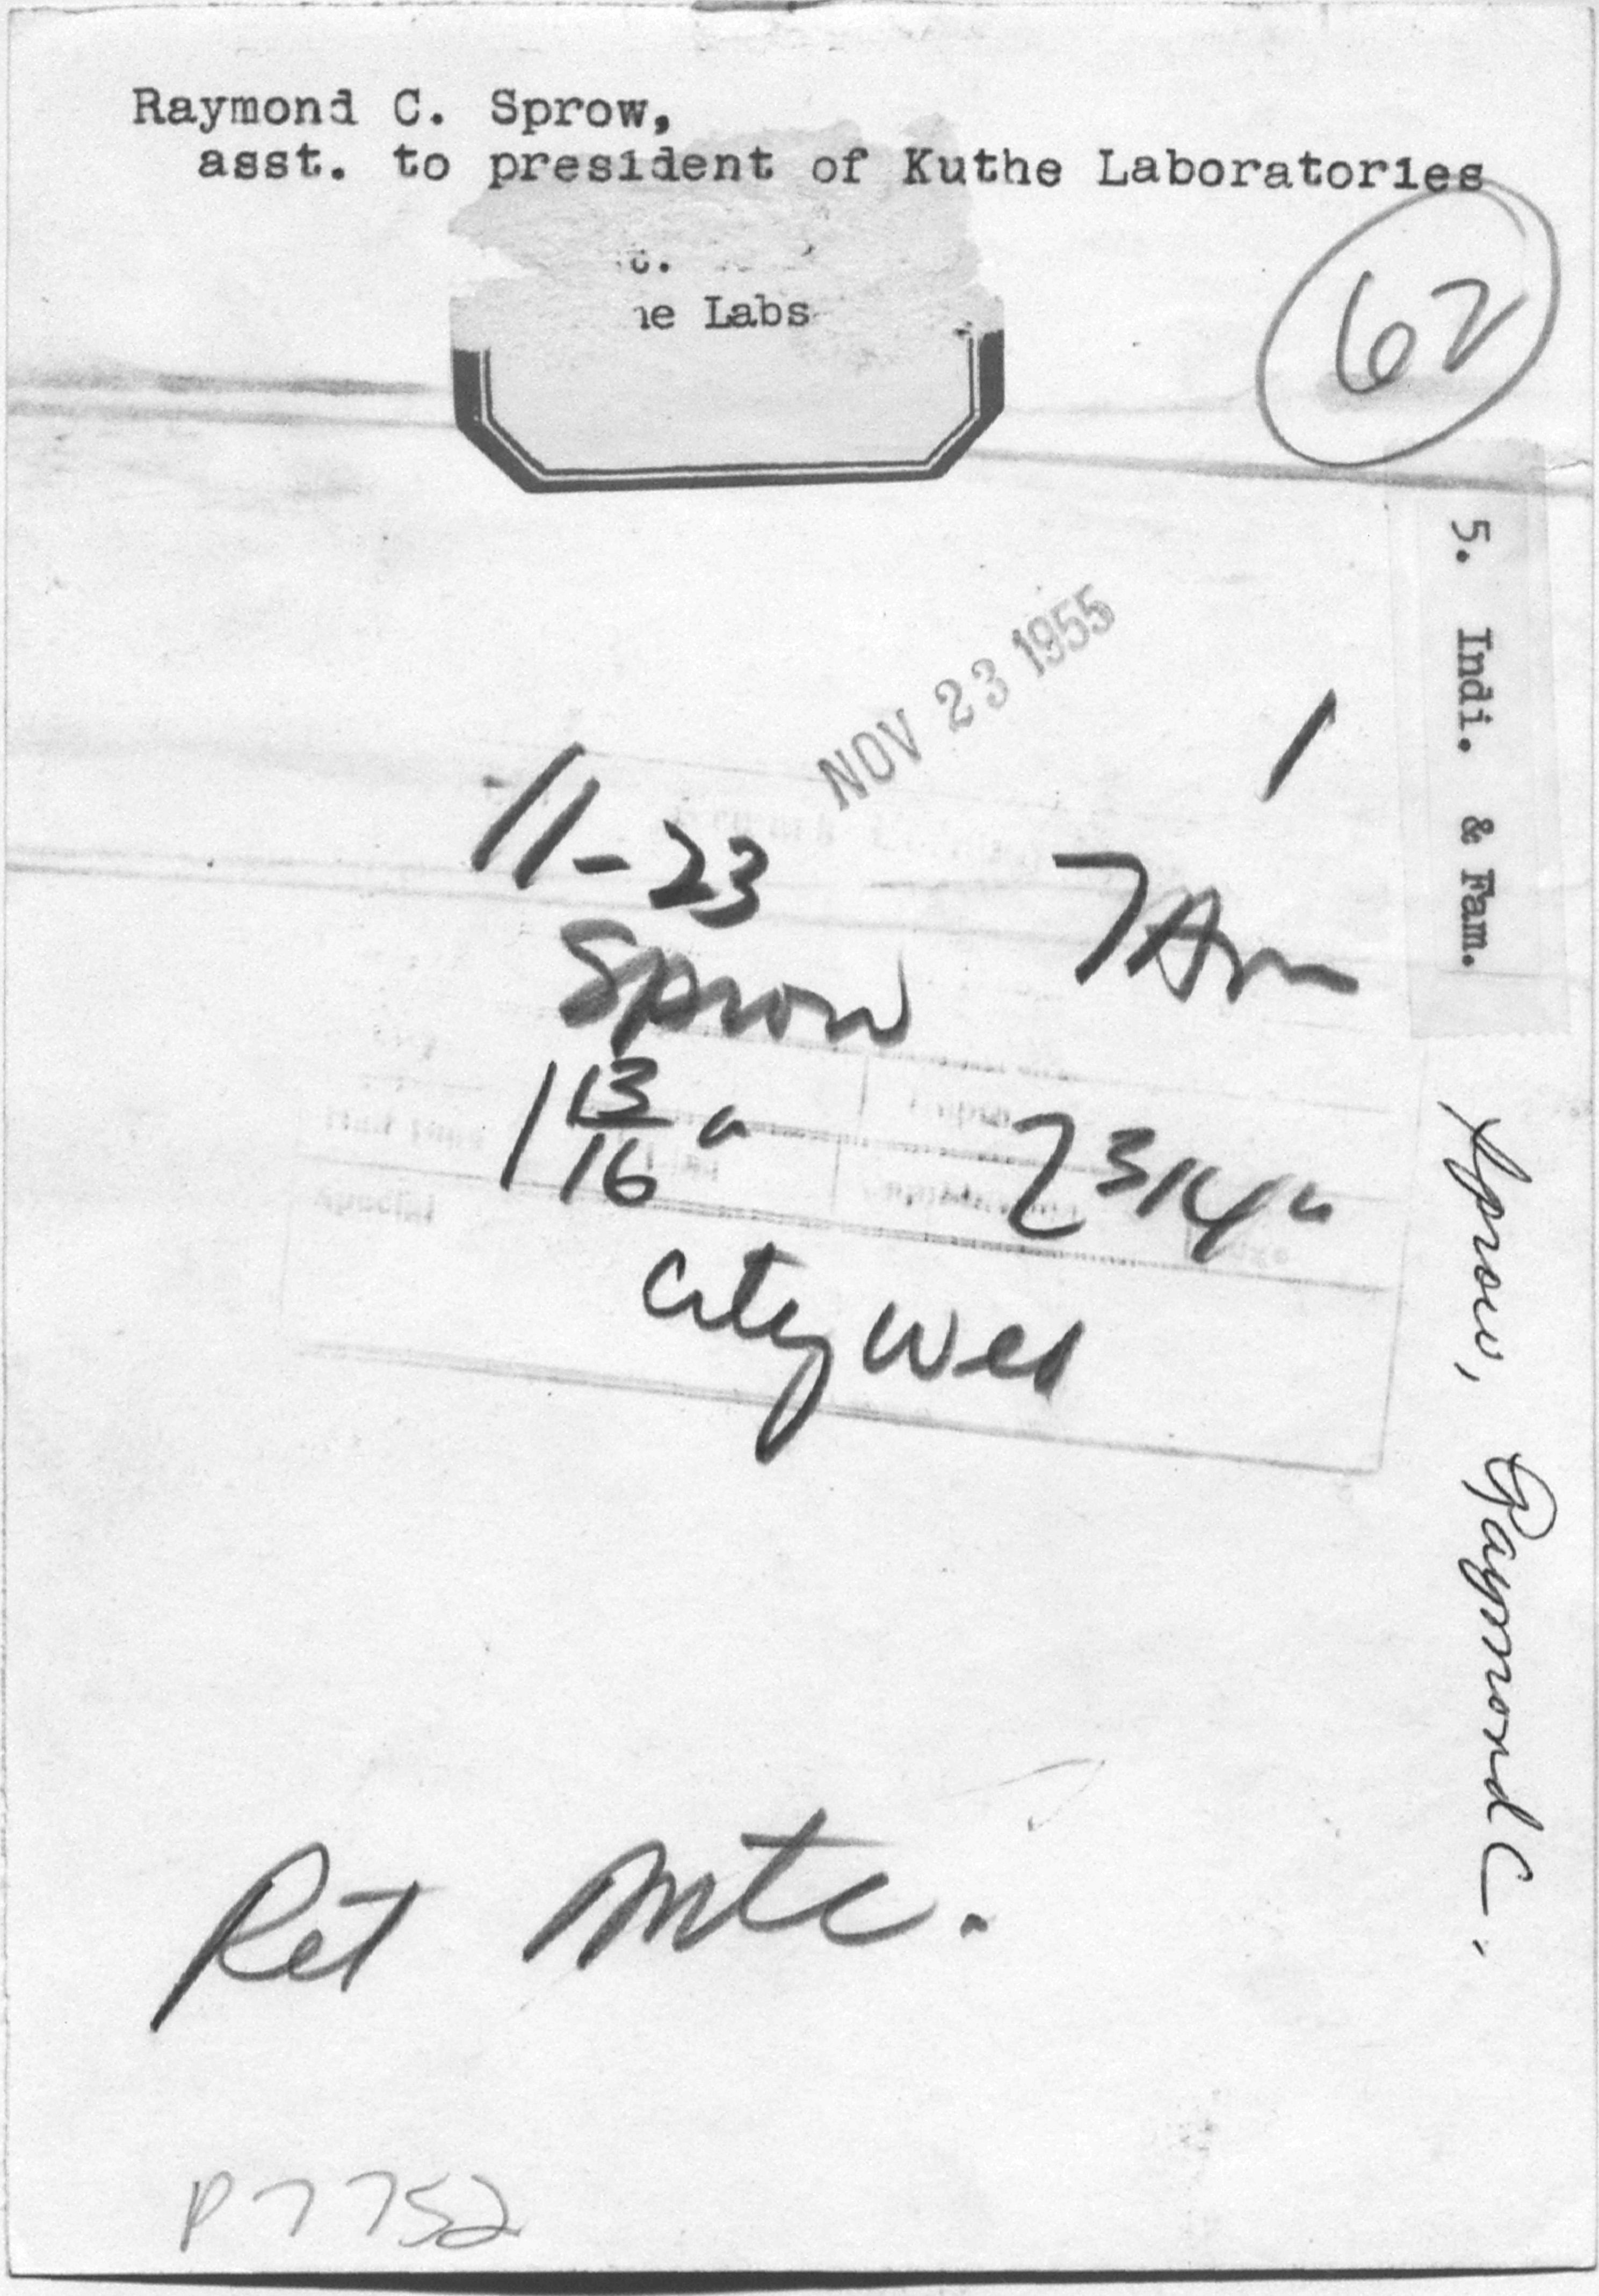 Raymond C. Sprow,
asst. to president of Kuthe Laboratories
c.
e Labs
62
5. Indi. & Fam.
NOV 23 1955
1
11-23
7 Am
Sprow
1 13/16"
2 3/4"
City Wed
Sprow, Raymond C.
Ret Mtc.
P7752